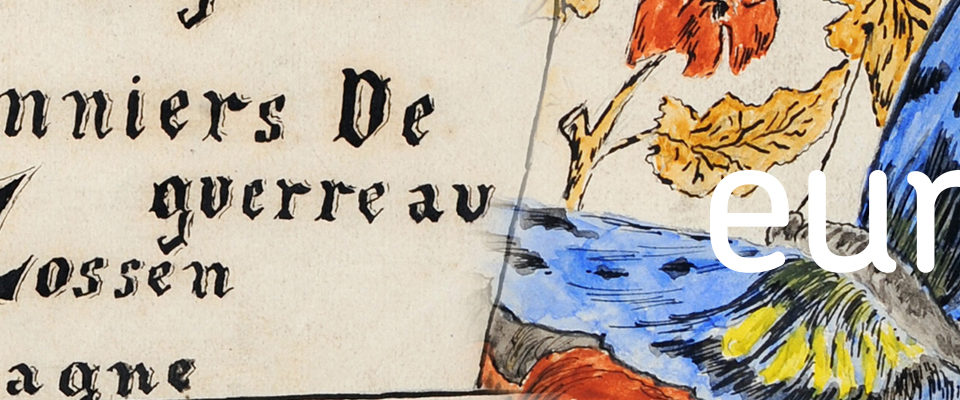 nniers De
guerre au
ossen
agne
eur